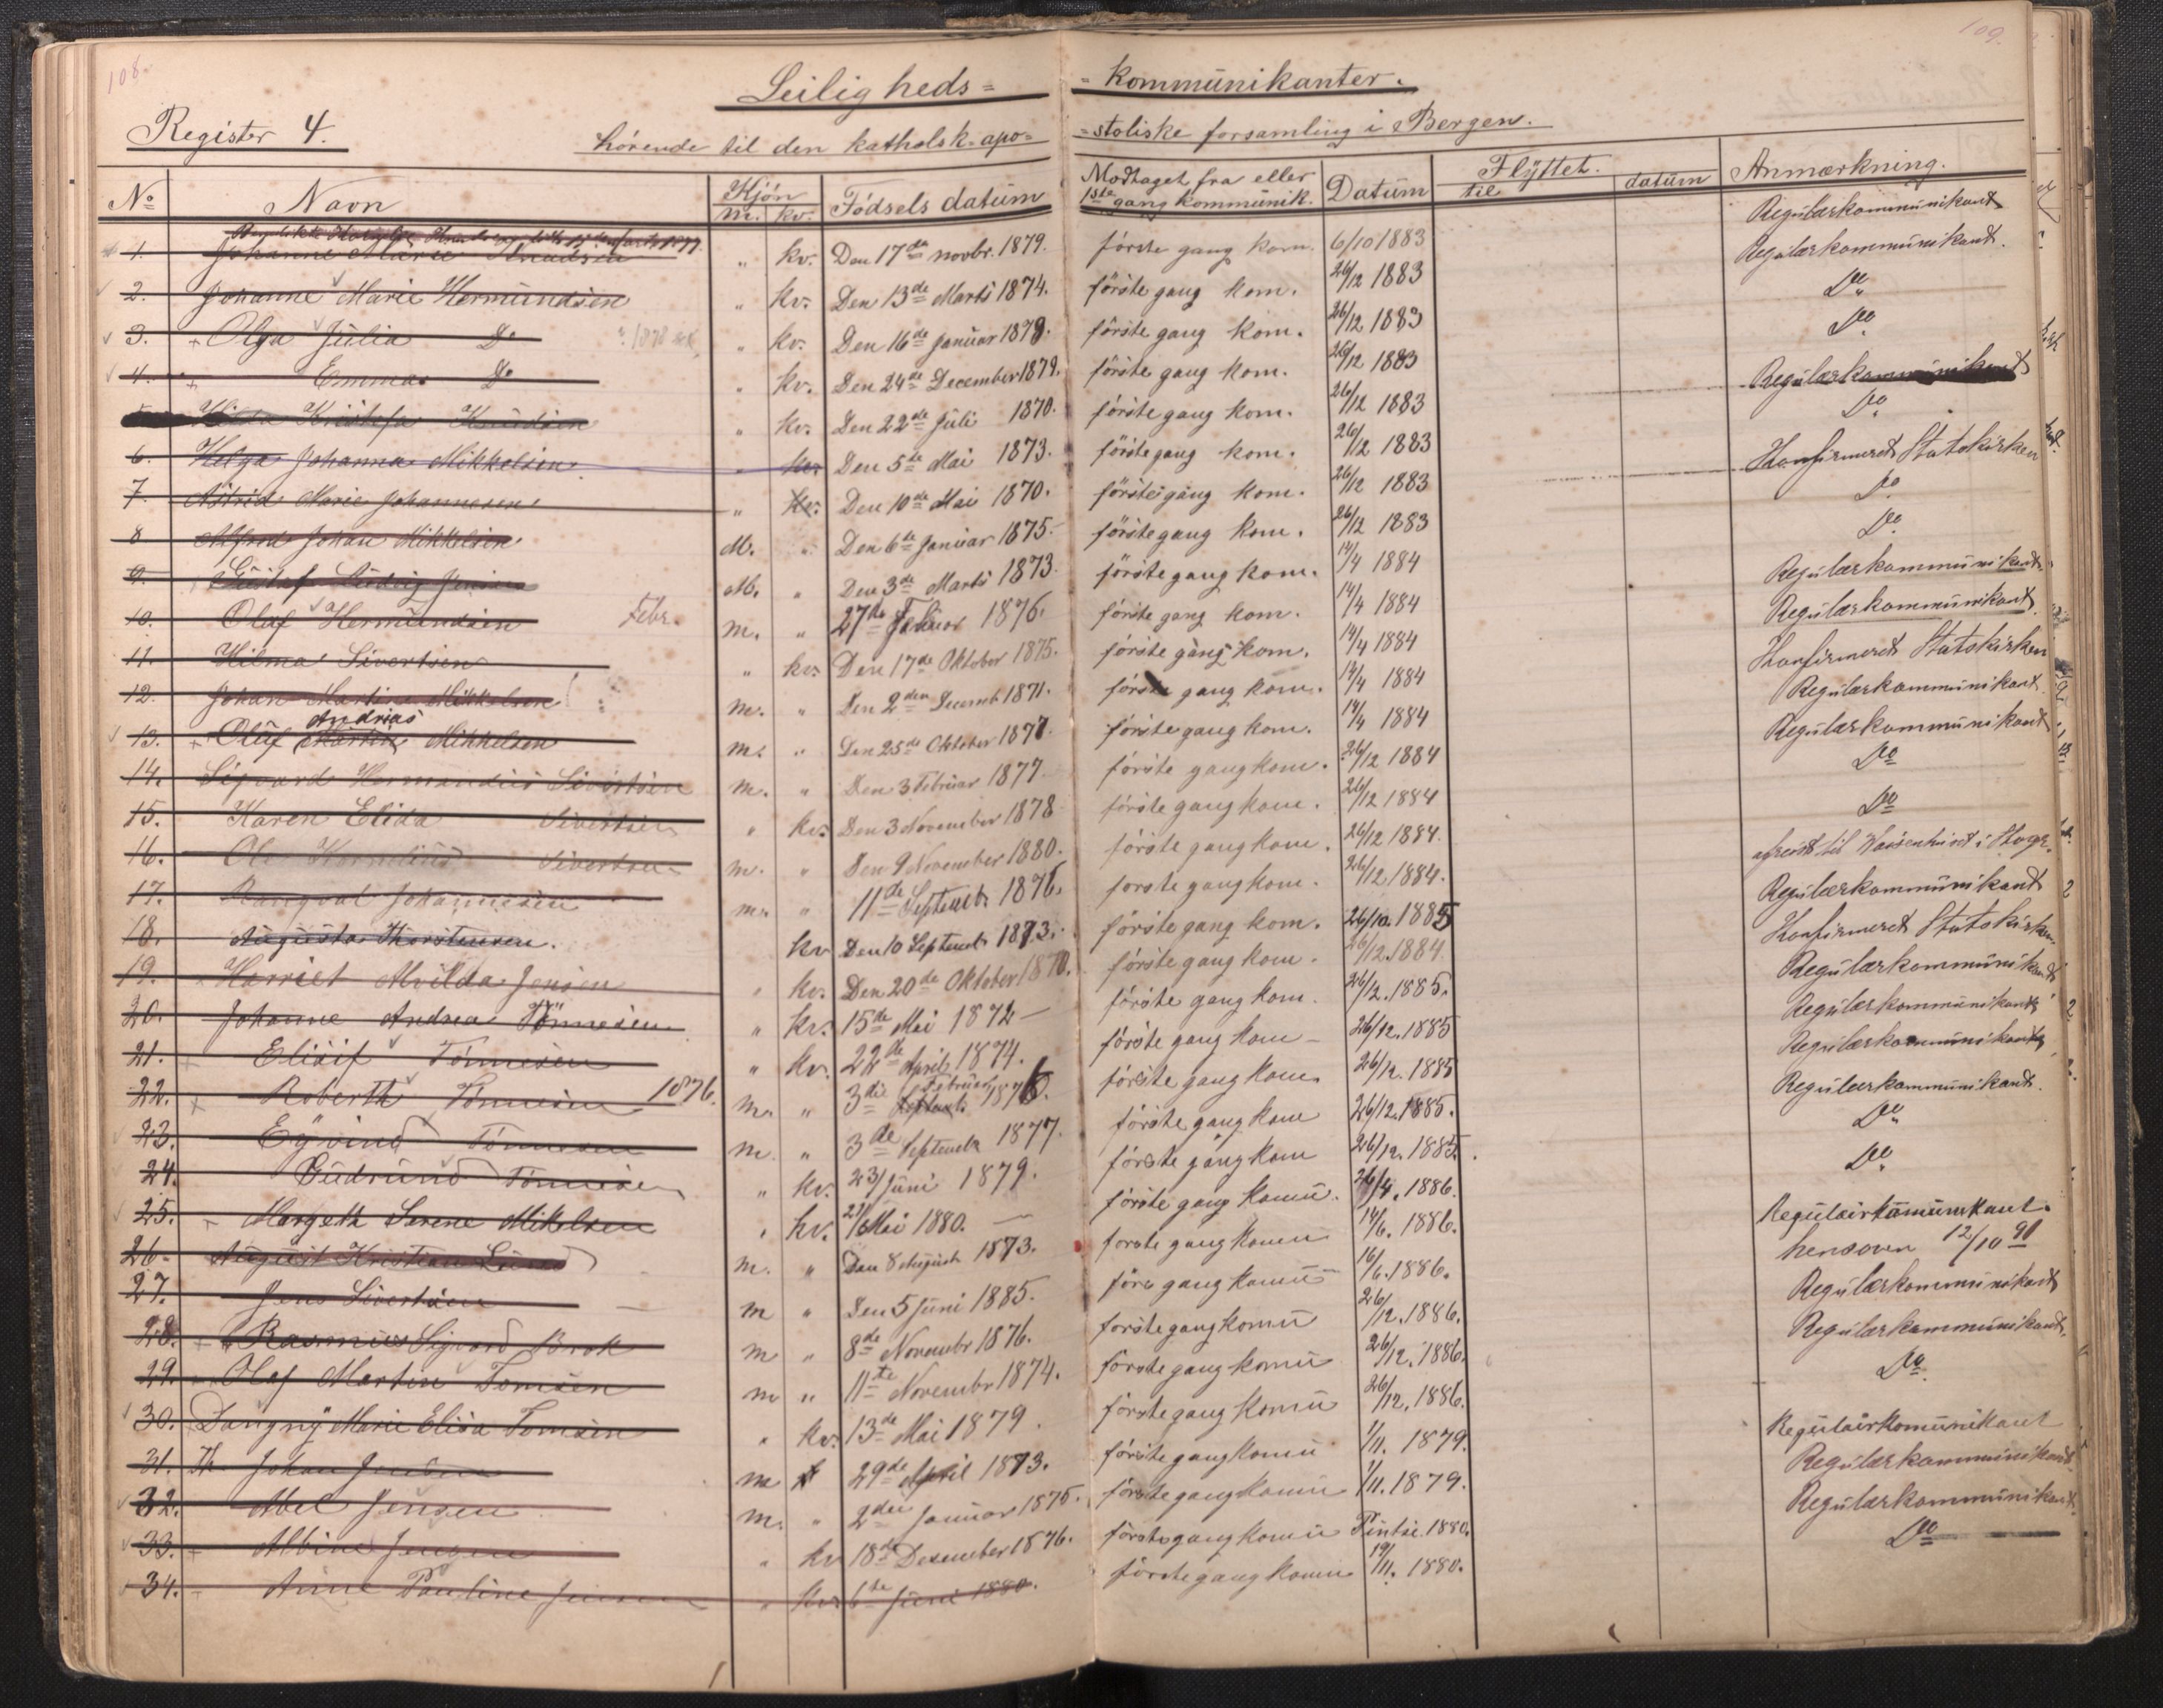 108.
109.
Leiligheds= =kommünikanter.
Register 4.
hørende til den katholsk-apo= =stoliske forsamling i Bergen.
No Navn Kjøn m. kv. Fødsels datüm Modtaget fra eller 1ste gang kommünik. Datüm Flÿttet. til datüm Anmærkning.
Regülærkommünikant
1. Johanne Marie Knudsen " kv. Den 17de novbr. 1879. første gang kom. 6/10 1883 Regülærkommünikant.
2. Johanne Marie Hermündsen " kv. Den 13de Marts 1874. förste gang kom. 26/12 1883 Do
3. + Olga Jülia Do " kv. Den 16de Janüar 1878. förste gang kom. 26/12 1883 Do
4. + Emma Do " kv. Den 24de December 1879. förste gang kom. 26/12 1883 Regülærkommünikant
Kristefa Knüdsen " kv. Den 22de Jüli 1870. förste gang kom. 26/12 1883 Do
6. Helga Johanna Mikkelsen " kv. Den 5te Mai 1873. förste gang kom. 26/12 1883 Konfirmeret Statskirken
7. Astrid Marie Johannesen " kv. Den 10de Mai 1870. förste gang kom. 26/12 1883 Do
8 Alfred Johan Mikkelsen M. " Den 6te Janüar 1875. förste gang kom. 26/12 1883 Do
9. Güstaf Lüdvig Jensen M. " Den 3de Marts 1873. förste gang kom. 14/4 1884 Regülærkommünikant
10. Olaf Hermündsen Febr. m. " 27de Febrüar 1876. förste gang kom. 14/4 1884 Regülærkommünikant
11. Hilma Sivertsen " kv. Den 17de Oktober 1875. förste gang kom. 14/4 1884 Konfirmeret Statskirken
12. Johan Martin Mikkelsen m. " Den 2den Decemb 1871. første gang kom. 14/4 1884 Regülærkommünikant
Andreas
13. + Olüf Martin Mikkelsen m. " Den 25de Oktober 1877. förste gang kom. 14/4 1884 Regülærkommünikant
14. Sigvard Hermandüs Sivertsen m. " Den 3 Februar 1877 förste gang kom. 26/12 1884 Do
15. Karen Elida Sivertsen " kv. Den 3 November 1878 förste gang kom. 26/12 1884 Do
16. Ole Kornelius Sivertsen m. " Den 9 November 1880. förste gang kom. 26/12 1884. afreist til Waisenhüset i
17. Rangval Johannesen m. " 11de Septemb. 1876. forste gang kom. 26/12 1884. Regülærkommünikant
18. Augüsta Thorstensen. kv Den 10 Septemb 1873. förste gang kom. 26/10. 1885 Konfirmeret Statskirken
19. Harriet Alvilda Jensen " kv. Den 20de Oktober 1870. förste gang kom. 26/12. 1884. Regülærkommünikant
20. Johanne Andrea Tönnesen " kv. 15de Mai 1872 — förste gang kom. 26/12. 1885. Regülærkommünikant
21. Elisif Tönnesen " kv. 22de April 1874. förste gang kom — 26/12. 1885 Regülærkommünikant
22. + Roberth Tönnesen 1876. m. " 3die Februar 1876. förste gang kom 26/12. 1885 Regülærkommünikant.
23. Eÿvind Tönnesen m. " 3de Septemb 1877. förste gang kom 26/12. 1885. Do
24. Güdrün Tönnesen " kv. 23/Jüni 1879. förste gang kom 26/12. 1885. Do
25. + Margeth Serene Mikelsen " kv. 21/Mai 1880. — förste gang komü. 26/4. 1886. Regülairkomünikant.
26. August Kristian Lünd m. " Den 8 August 1873. forste gang komü 14/6. 1886. hensoven 12/10 91
27. Jens Sivertsen m " Den 5 Jüni 1885. förs gang komü 16/6. 1886. Regülærkommünikant
28. + Rasmüs Sigvard Brok m " 8de Novembr 1876. forste gang komü 26/12. 1886. Regülærkommünikant
29. Olaf Martin Tomsen m " 11te Novembr 1874. förste gang komü 26/12. 1886. Do
30. Dangnÿ Marie Elisa Tomsen " kv. 13de Mai 1879. förste gang komü 26/12. 1886. Regülairkomünikant
31. Th. Johan Jensen m 29de April 1873. förste gang komü 1/11. 1879. Regülærkommünikant
32. Abel Jensen m. " 2den Janüar 1875. förste gang komü 1/11. 1879. Regülærkommünikant
33. Albine Jensen " kv 18de Desember 1876. förste gang komü Pintse. 1880. Do
34. Anne Pauline Jensen " kv. 6te Jüni 1880. förste gang komü 19/11. 1880.